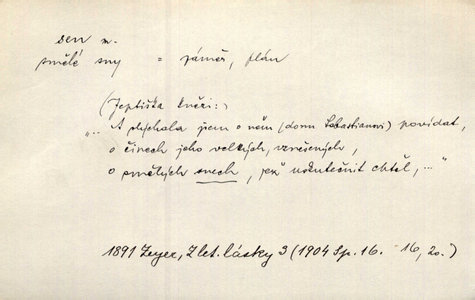 sen m.
smělé sny = záměr, plán
(Jeptiška kněži:)
"... A slýchala jsem o něm (donu Sebastianovi) povídat,
o činech jeho velkých, vznešených,
o smělých snech, jež uskutečnit chtěl, ..."
1891 Zeyer, Z let. lásky 3 (1904 Sp. 16. - 16, 20.)